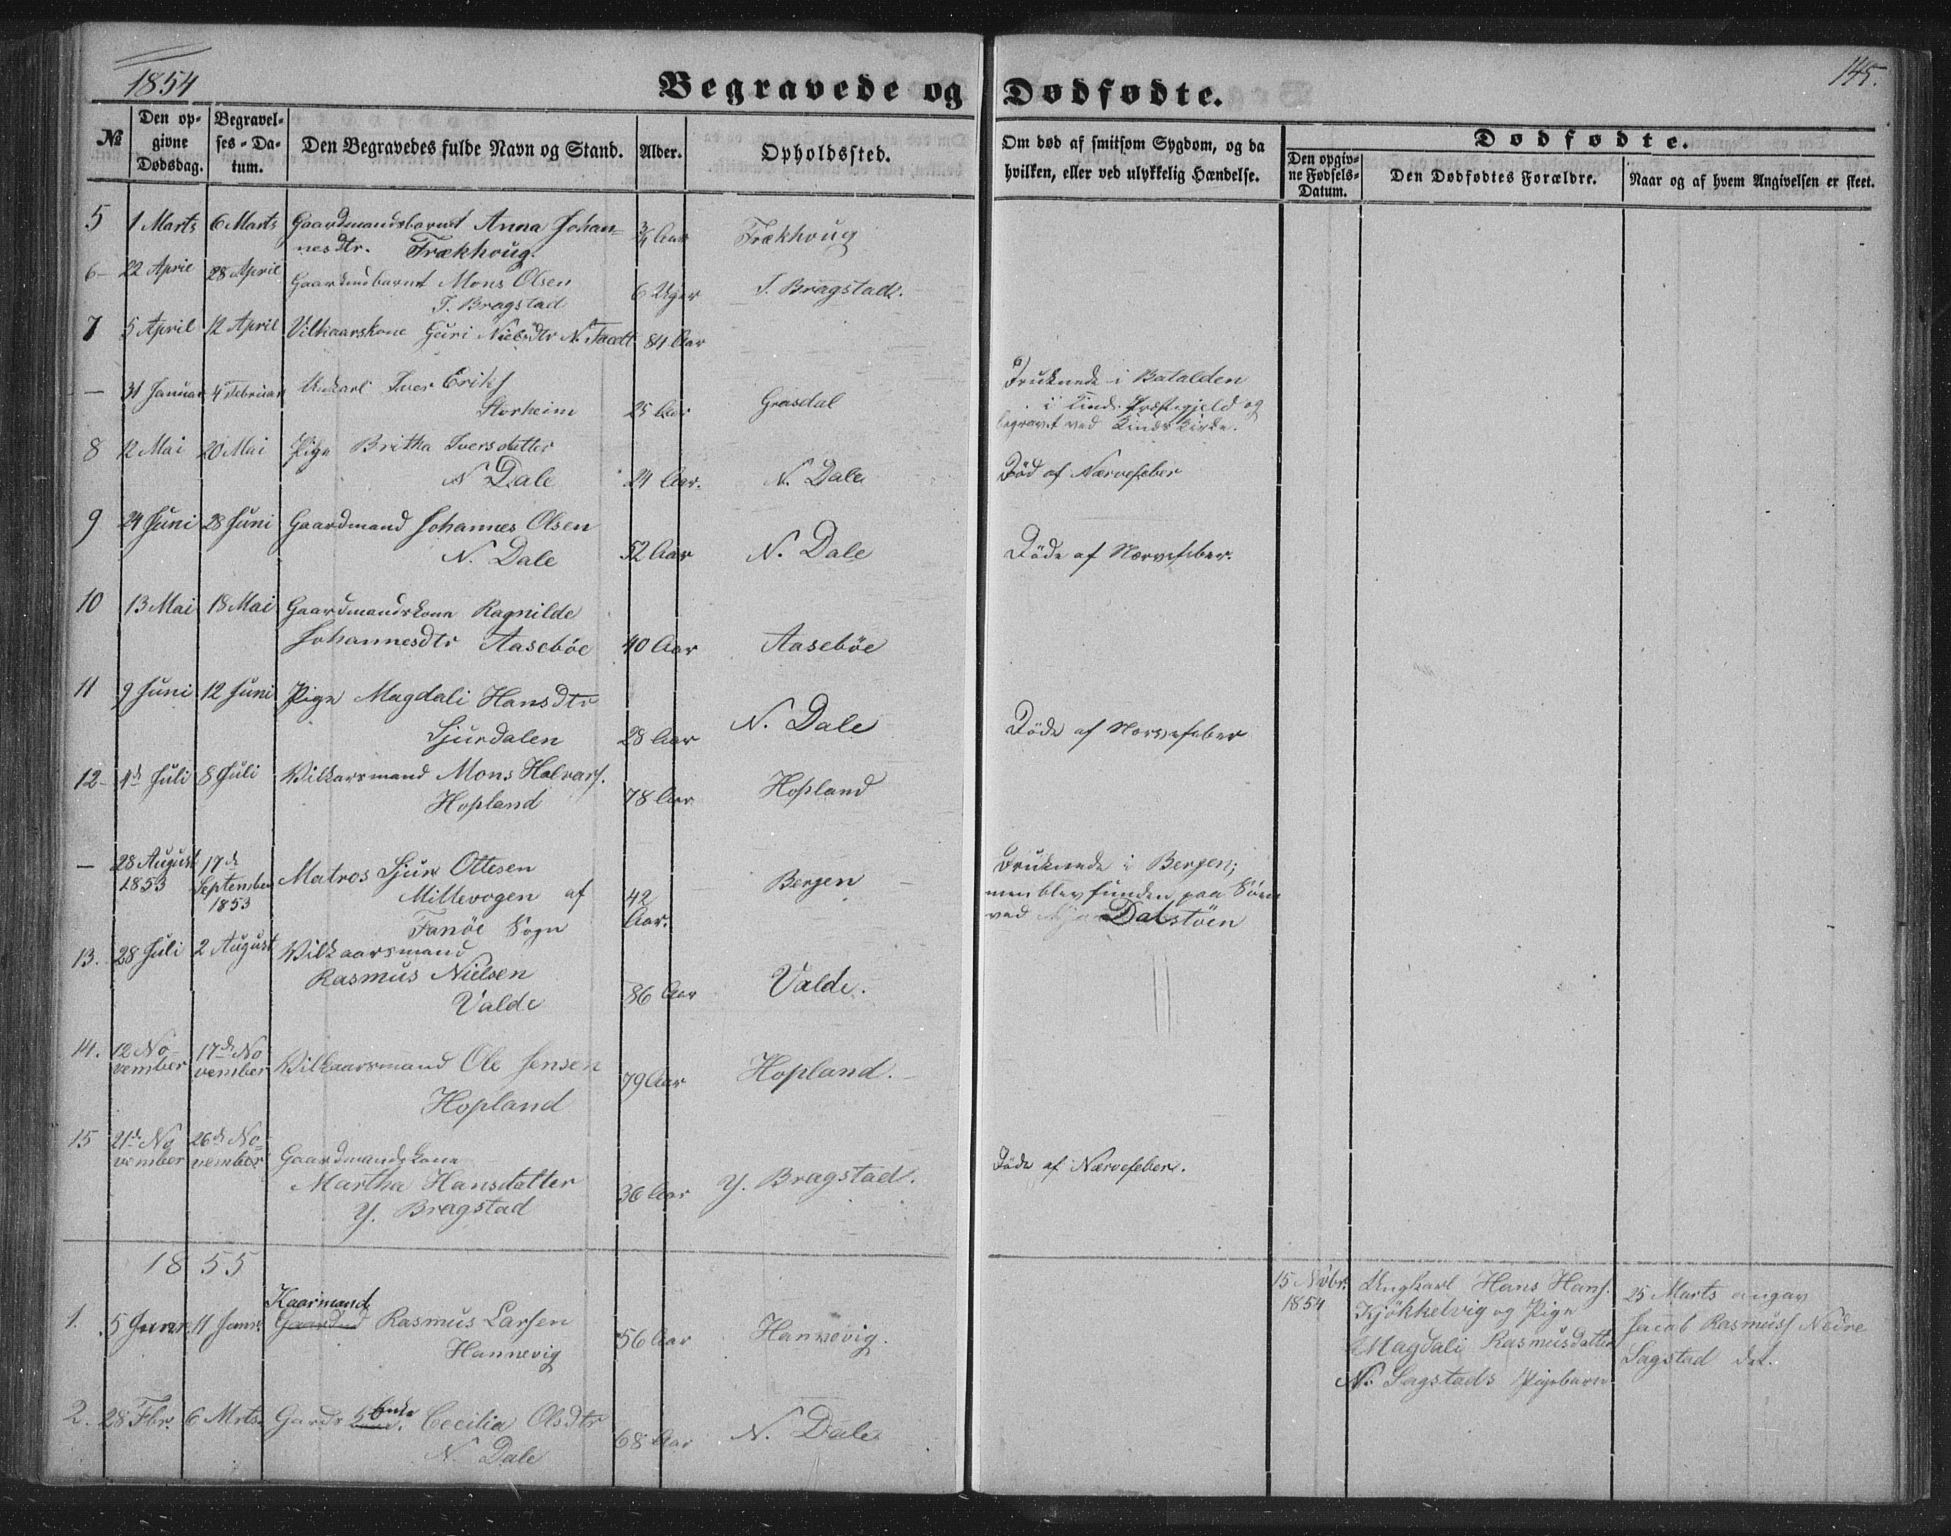 1854
145.
Begravede og Dødfødte.
№
Den op-
givne
Dødsdag.
Begravel-
ses-Da-
tum.
Den Begravedes fulde Navn og Stand.
Alder.
Opholdssted.
Om død af smitsom Sygdom, og da
hvilken, eller ved ulykkelig Hændelse.
Dødfødte.
Den opgiv-
ne Fødsels-
Datum.
Den Dødfødtes Forældre.
Naar og af hvem Angivelsen er skeet.
5 1 Marts 6 Marts Gaardmandsbarnet Anna Johan-
nesdtr. Trækhoug. ¾ Aar Trækhoug
6- 22 April 28 April Gaardmdbarnet Mons Olsen
I. Bragstad 6 Uger I. Bragstad.
7 5 April 12 April Vilkaarskone Guri Nielsdtr N. 84 Aar
— 31 Januar 4 Februar Unkarl Iver Eriks.
Storheim 25 Aar Græsdal
Druknede i Batalden
i Kinds Præstegjeld og
begravet ved Kinds Kirke.
8 12 Mai 20 Mai Pige Britha Iversdatter
N Dale 24 Aar. N. Dale Död af Nærvefeber
9 24 Juni 28 Juni Gaardmand Johannes Olsen
N. Dale 52 Aar N. Dale Döde af Nærvefeber.
10 13 Mai 18 Mai Gaardmandskone Ragnilde
Johannesdtr Aasebøe 40 Aar Aasebøe
11 9 Juni 12 Juni Pige Magdali Hansdtr
Sjurdalen 28 Aar N. Dale Döde af Nervefeber
12- 4d Juli 8 Juli Vilkarsmand Mons Halvars.
Hopland 78 Aar Hopland
— 28 August 1853 17d September 1853 Matros Sjur Ottesen
Mittevogen af
Fanöe Sogn 42 Aar. Bergen
Druknede i Bergen;
men blev funden paa Söen
ved Dalstöen
13. 28 Juli 2 August Vilkaarsmand
Rasmus Nielsen
Valde 86 Aar Valde.
14. 12 No-
vember 17d No
vember Vilkaarsmand Ole Jensen
Hopland 79 Aar Hopland.
15 21d No
vember 26d No-
vember Gaardmandskone
Martha Hansdatter
Y. Bragstad 36 Aar Y. Bragstad. Döde af Nærvefeber.
1855
1. 5 Janr. 11 Janr. Kaarmand
Gaardmd Rasmus Larsen
Hannevig 56 Aar Hannevig.
15 Nobr.
1854
Ungkarl Hans Hans.
Kjökkelvig og Pige
Magdali Rasmusdatter
N. Sagstads Pigebarn
25 Marts angav
Jacob Rasmuss. Nedre
Sagstad det.
2. 28 Fbr. 6 Mrts. Gards Enke Cecilia Olsdtr
N. Dale 68 Aar N. Dale